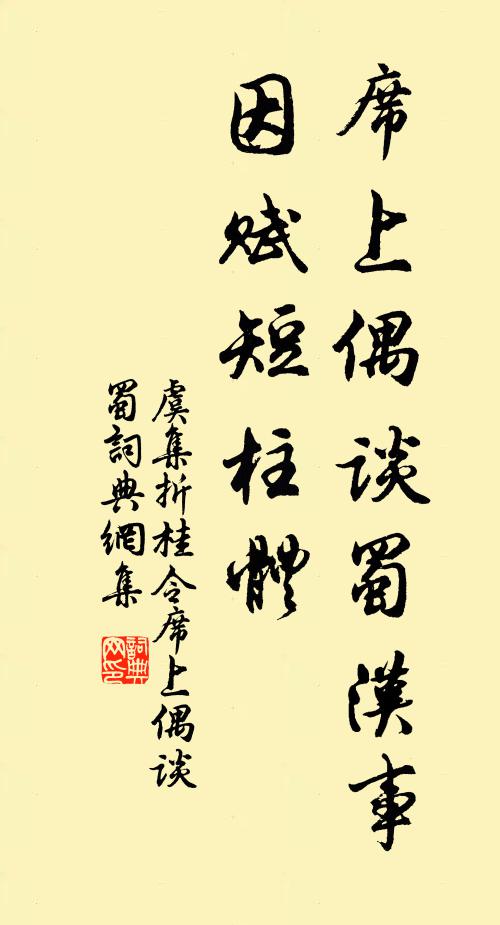 席上偶談蜀漢事
因賦短柱體
虞集折桂令席上偶談
蜀詞典網集
詞典
网印